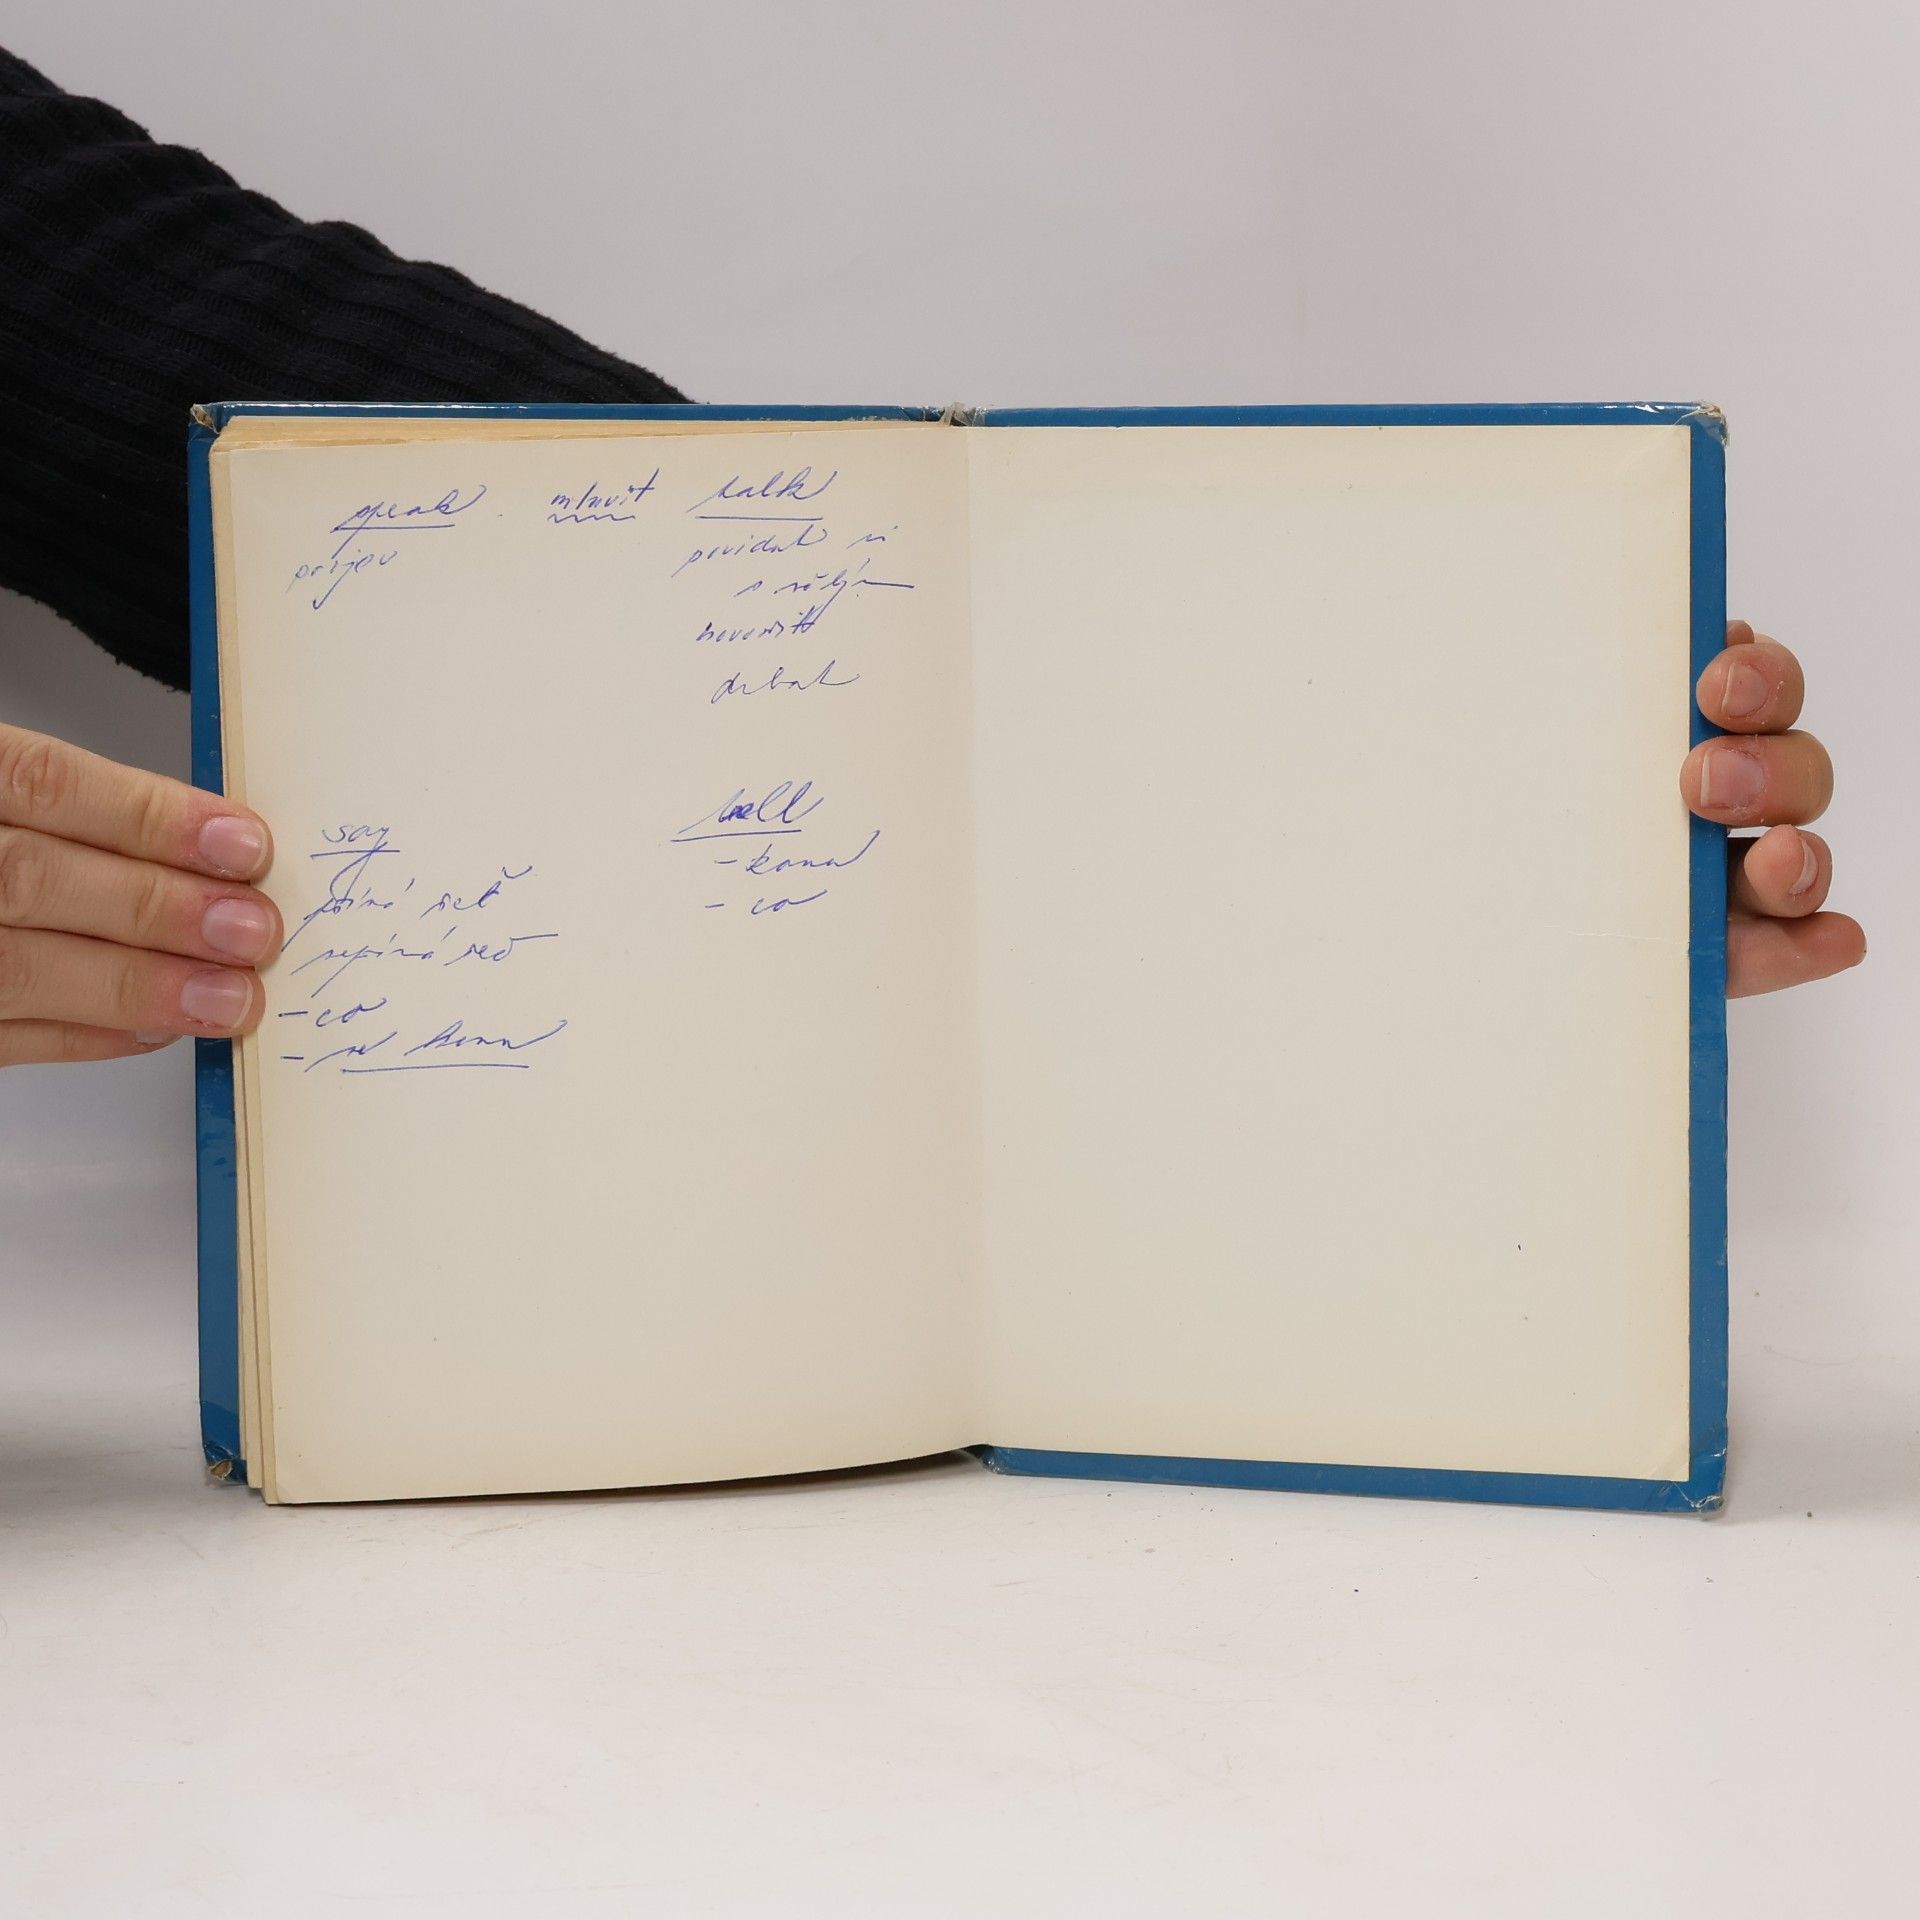 speak mluvit talk
projev
povídat si
s někým
hovořit
drbat
say
přímá řeč
nepřímá řeč
- co
- ne komu
tell
- komu
- co